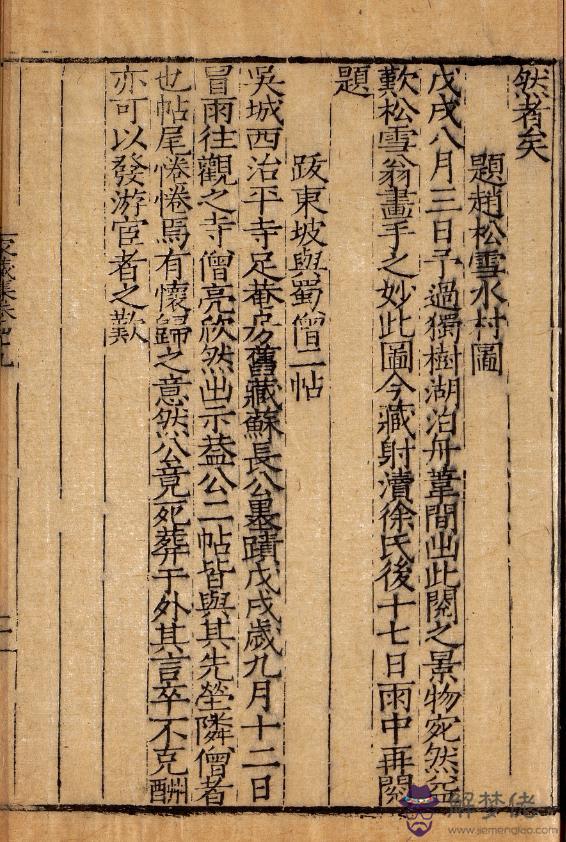 然者矣
題趙松雪水村圖
戊戌八月三日予過獨樹湖泊舟葦間出此閱之景物宛然益
歎松雪翁畫手之妙此圖今藏射瀆徐氏後十七日雨中再閱
題
跋東坡與蜀僧二帖
吳城西治平寺足菴房舊藏蘇長公墨蹟戊戌歲九月十二日
冒雨往觀之寺僧亮欣然出示葢公二帖皆與其先塋隣僧者
也帖尾惓惓焉有懷歸之意然公竟死葬于外其言卒不克酬
亦可以發游宦者之歎
藏集卷
解梦佬
www.jiemenglao.com